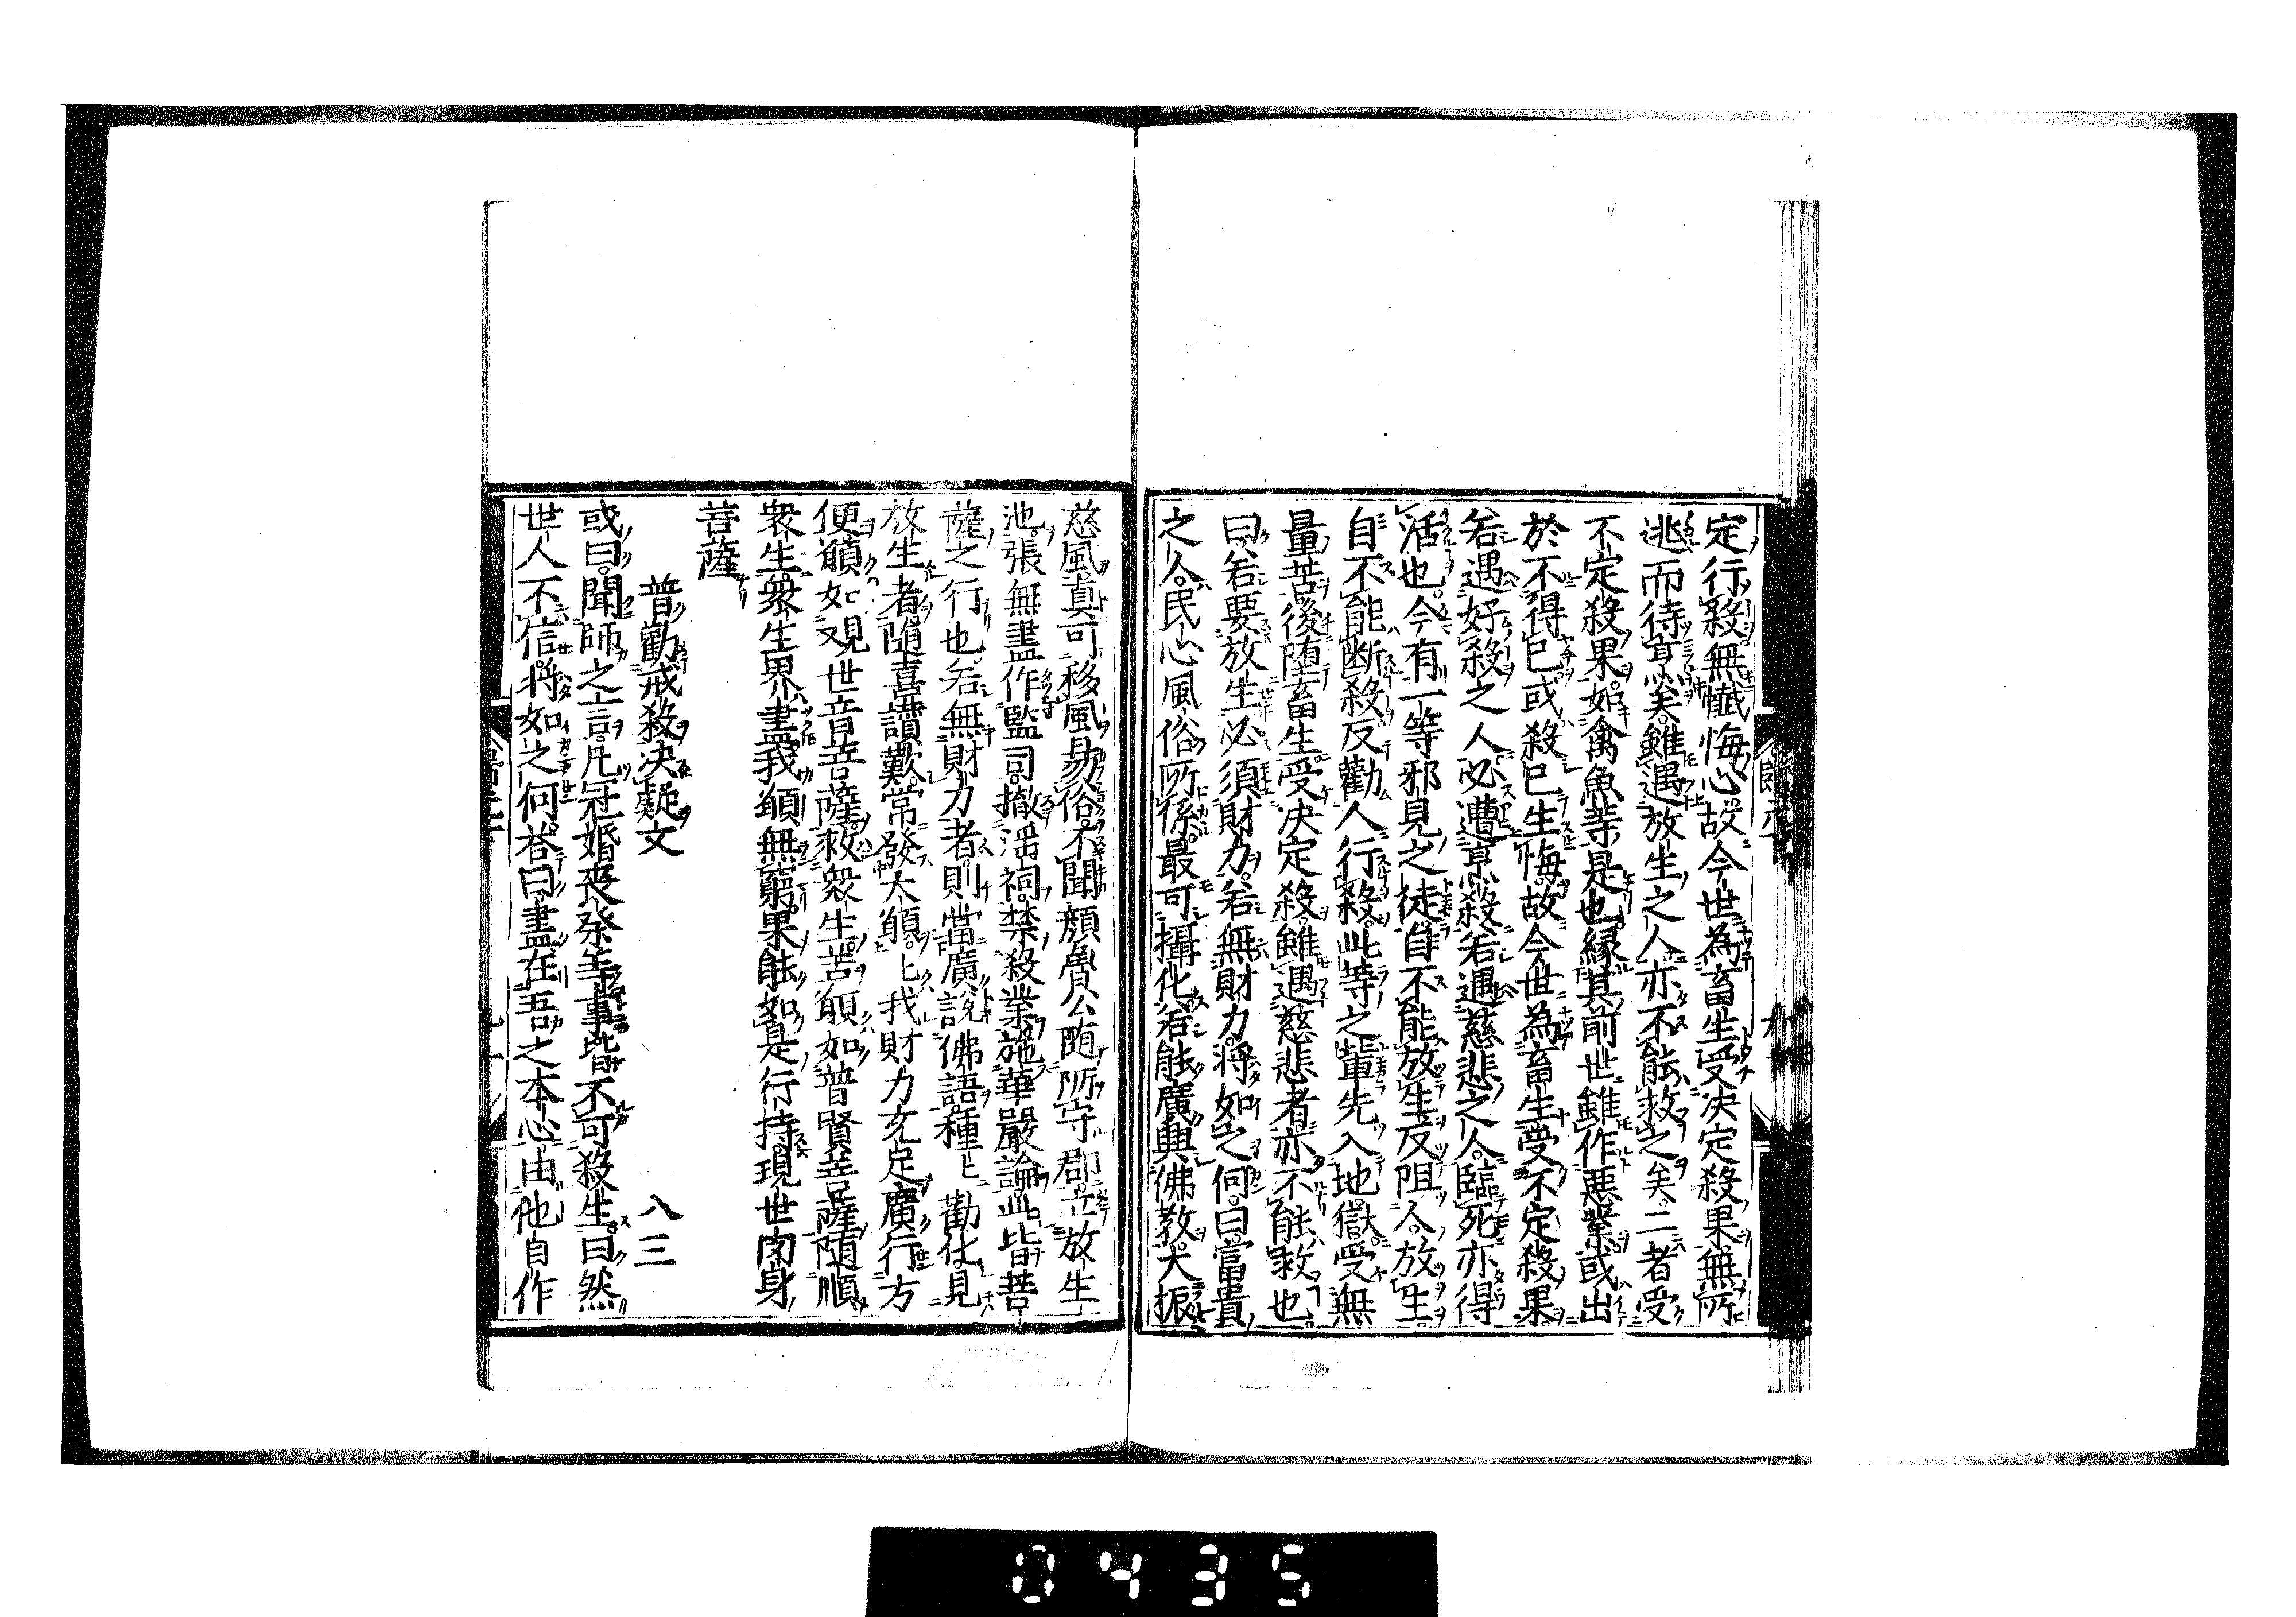 定行殺無懺悔心。故今世為畜生受决定殺果。無所
逃而待烹矣。雖遇放生之人亦不能救之矣。二者受
不定殺果。如禽魚等是也。縁其前世雖作悪業或出
於不得已或殺已生悔。故今世為畜生受不定殺果。
若遇好殺之人必遭烹殺。若遇慈悲之人。臨死亦得
活也。今有一等邪見之徒。自不能放生反阻人。放生。
自不能断殺反勸人行殺。此等之輩先入地獄。受無
量苦。後堕畜生受决定殺。雖遇慈悲者亦不能救也。
曰。若要放生必須財力。若無財力。将如之何。曰。當貴
之人。民心風俗所係。最可攝化。若能廣興佛教。大振
慈風真可移風易俗。不聞顔魯公随所守郡立放生
池。張無盡作監司。撤淫祠。禁殺業。施華嚴論。此皆菩
薩之行也。若無財力者。則當廣説佛語。種〻勸化。見
放生者随喜讃歎。常發大願。〻我財力充足廣行方
便。願如現世音菩薩救衆生苦。願如普賢菩薩随順
衆生。衆生界盡我願無窮。果能如是行持。現世肉身
菩薩
普勸戒殺决疑文　八三
或曰。聞師之言。凡冠婚喪祭等事皆不可殺生。曰。然
世人不信。将如之何。荅曰。盡在吾之本心由他自作
0435